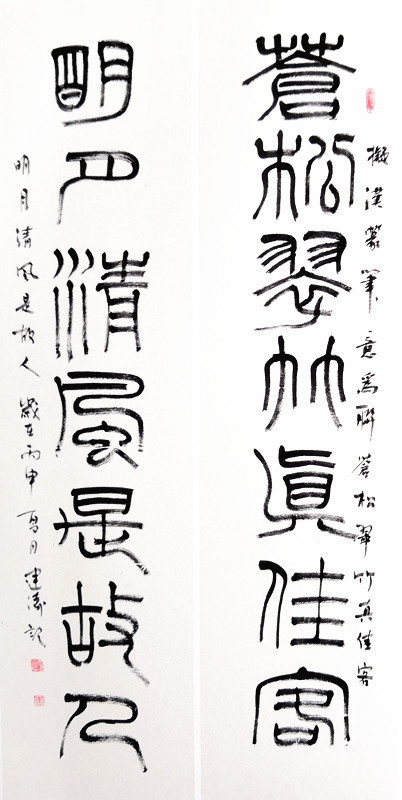 擬漢篆筆意為聯蒼松翠竹真佳客
蒼松翠竹真佳客
明月清風是故人
明月清風是故人歲在丙申夏月建濤記